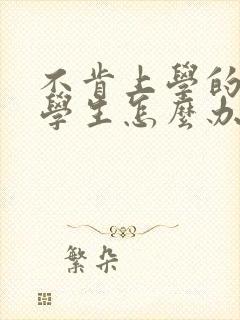 不肯上學的
學生怎麼办
繁朵